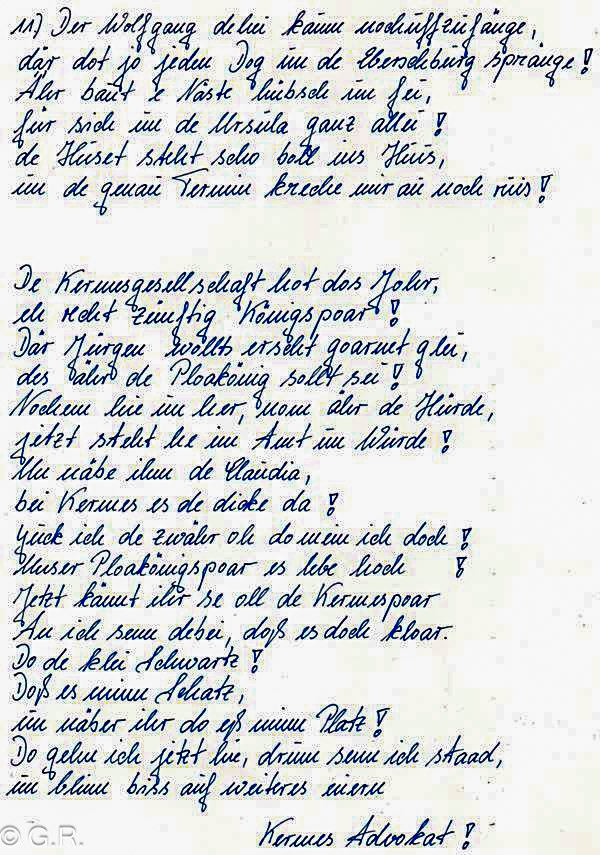 11) Der Wolfgang dehei känn nochuffzufänge,
där dot jo jeden Dog im de Eberschbürg spränge!
Ähr baut e Näste hübsch un fei,
für sich un de Ursula ganz allei!
de Huset steht scho boll ins Hüs,
un de genau Termin kreche mir au noch rüis!
De Kermesgesellschaft hot dos Johr,
eh recht zünftig Königspoar!
Där Jürgen wollts erscht goarnet glei,
des ähr de Ploakönig sollt sei!
Nochem hie un her, nom ähr de Hürde,
jetzt steht he im Amt un Würde!
Un näbe ihm de Claudia,
bei Kermes es de dicke da!
Guck ich de zwähr oh do mein ich doch!
Unser Ploakönigspoar es lebe hoch!
Jetzt kännt ihr se oll de Kermespoar
Au ich senn debei, doß es doch kloar.
Do de klei Schwartz!
Doß es minn Schatz,
un näber ihr do eß minn Platz!
Do gehn ich jetzt hie, drüm senn ich staad,
un blinn biss auf weiteres euern
Kermes Advokat!
© G.R.